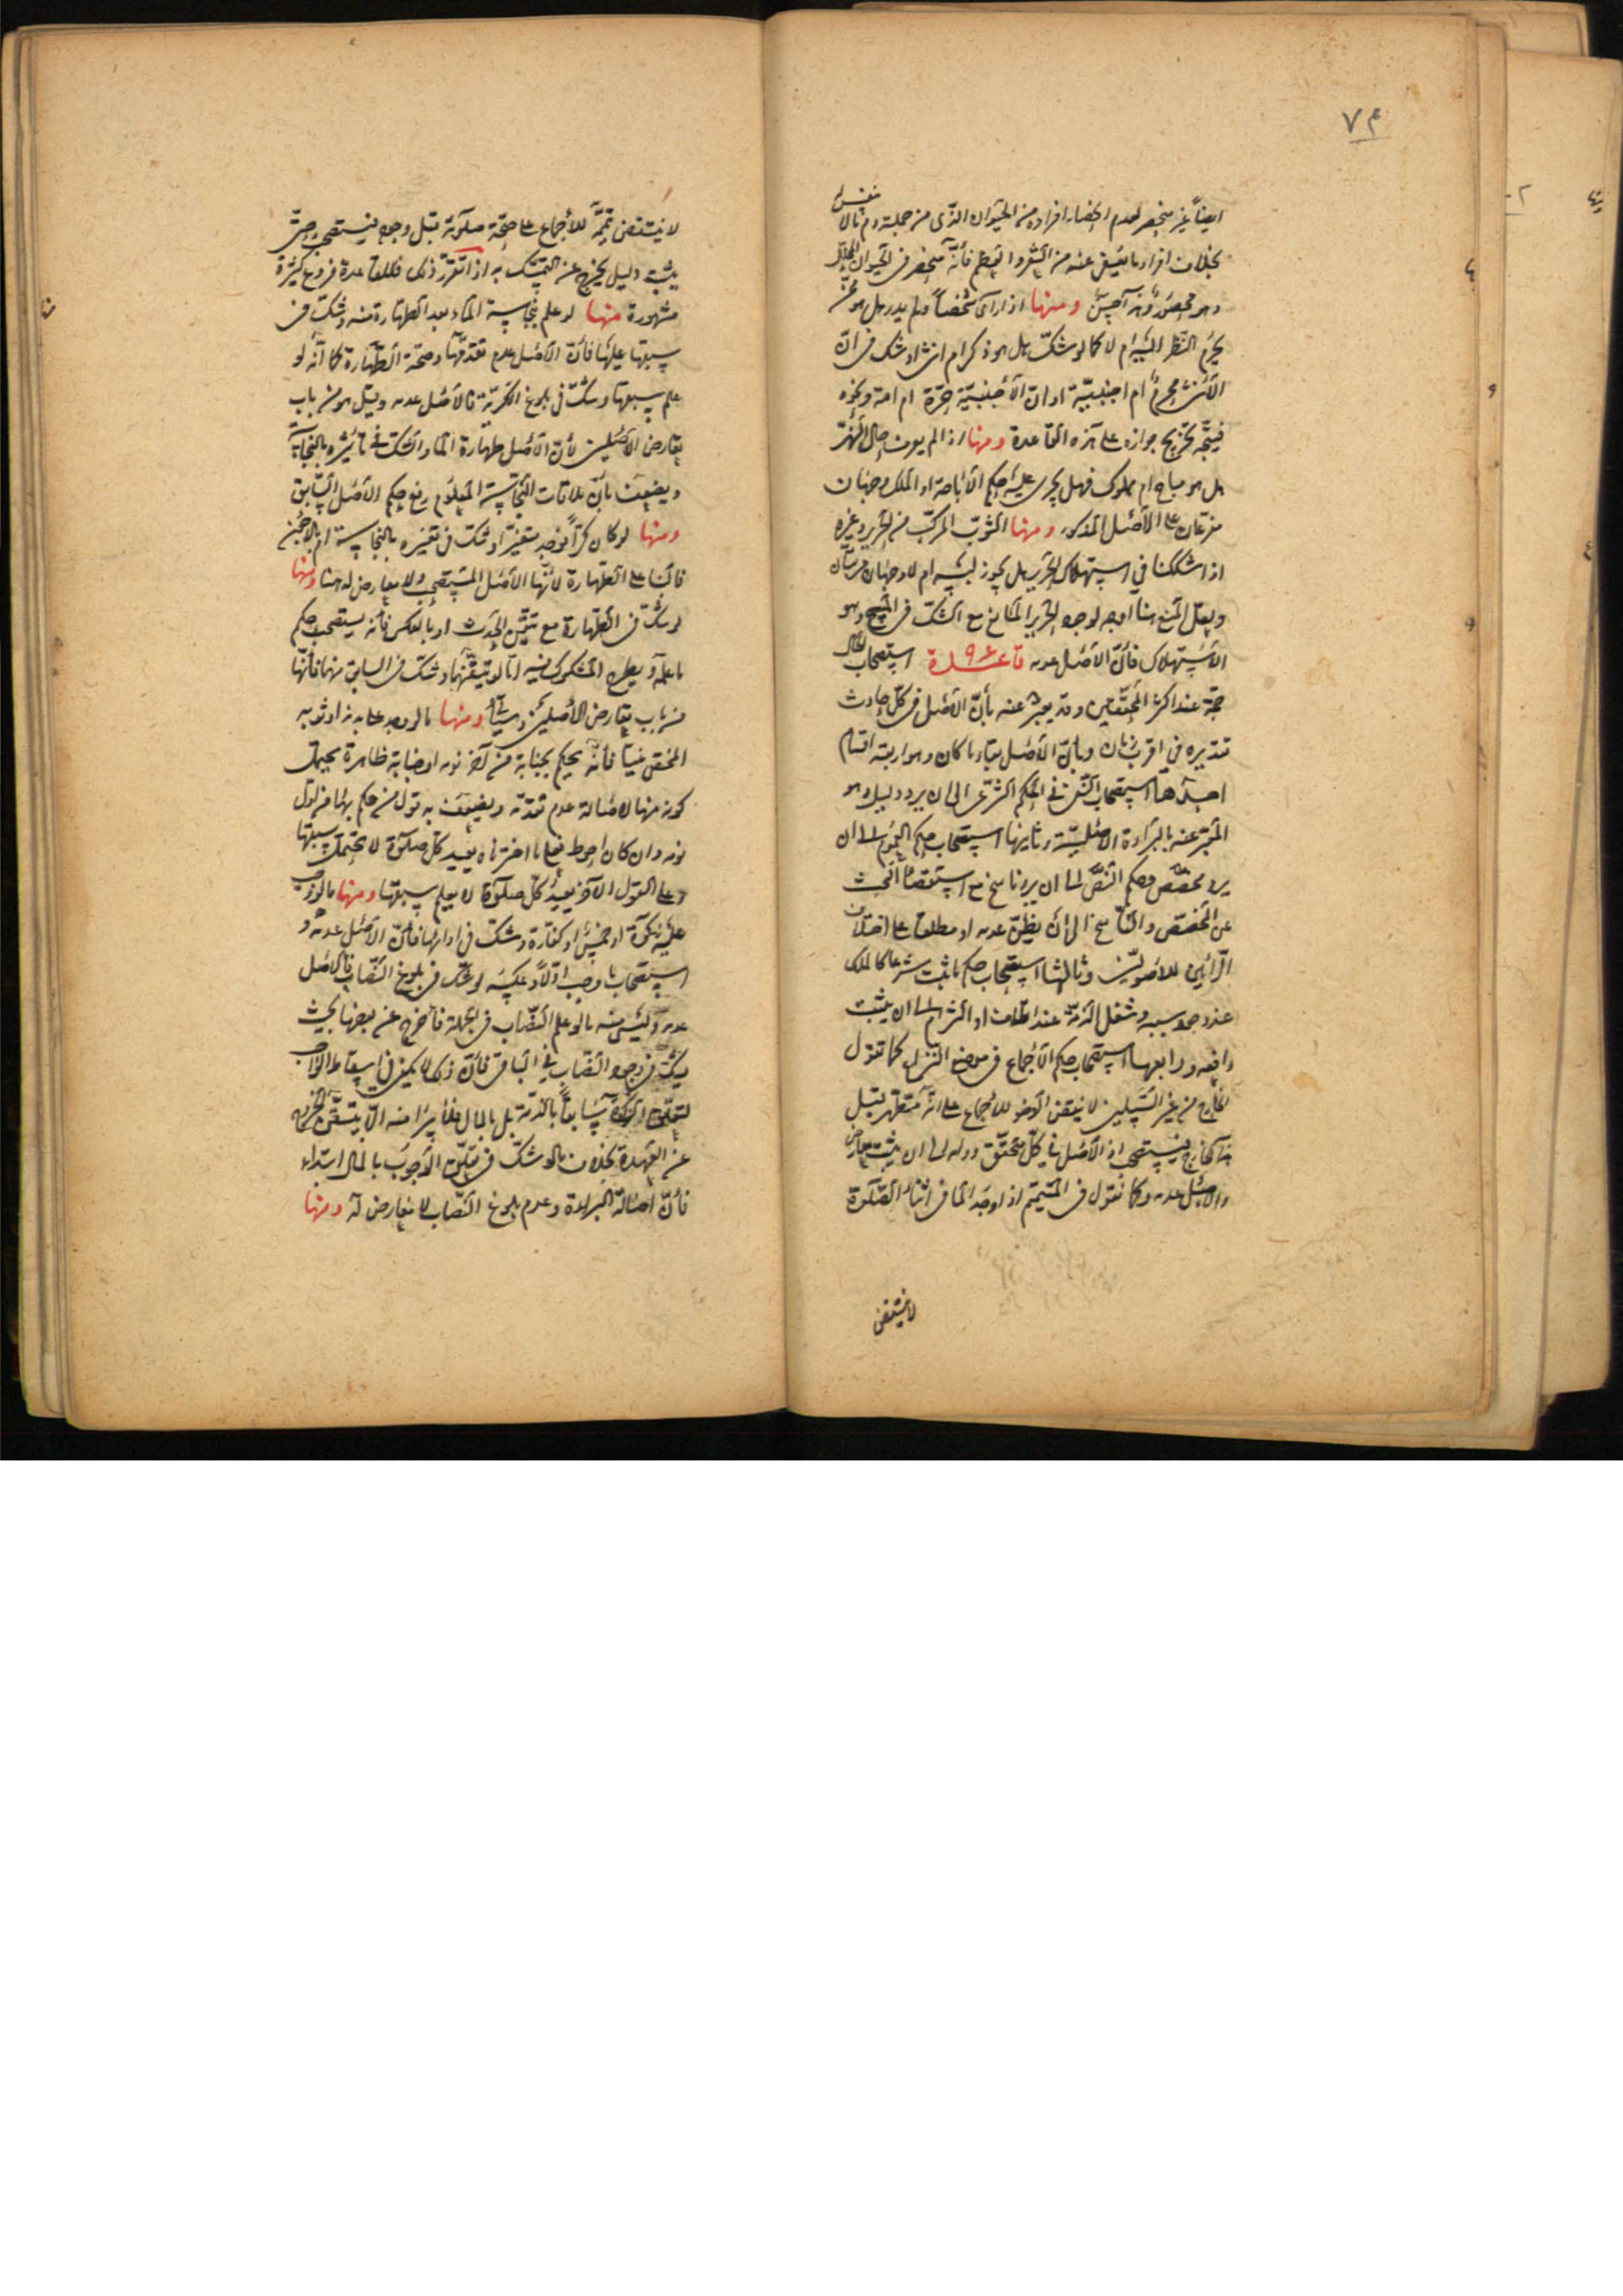 ٧٤
ايضاً غير منحصر لعدم احصاء افراده من الحيوان الذى من جملة دم ما لا نفس له
بخلاف افراد ما يعفى عنه من الشعر والعظم فأنه منحصر فى الحيوان
وهو محصور ومنها اذا رأى شخصاً ولم يدر هل هو ممن
يحرم النظر اليه ام لا كما لو شكّ هل هو ذكر ام انثى او شك فى انّ
الانثى محرم ام اجنبيّة او ان الأجنبيّة حرّة ام امة ونحوه
فيتجه تخريج جوازه على هذه القاعدة ومنها اذا لم يعرف حال النهر
هل هو مباح ام مملوك فهل يجرى عليه حكم الأباحة او الملك وجهان
مفرعان على الأصل المذكور ومنها الثوب المركب من الحرير وغيره
اذا شككنا فى استهلاك الحرير هل يجوز لبسه ام لا وجهان مرتبان
ولعل المنع هنا اوجه لوجود الحرير المانع مع الشك فى المبيح وهو
الاستهلاك فأنّ الأصل عدمه قاعدة استصحاب الحال
حجة عند اكثر المحققين وقد يعبر عنه بأنّ الأصل فى كلّ حادث
تقديره فى اقرب زمان وبأنّ الأصل بقاء ما كان وهو اربعة اقسام
احدها استصحاب النفى فى الحكم الشرعى الى ان يرد دليل وهو
المعبر عنه بالبراءة الاصليّة وثانيها استصحاب حكم العموم الى ان
يرد مخصص وحكم النصّ الى ان يرد ناسخ مع استقصاء البحث
عن المخصص والناسخ الى ان يظنّ عدمه او مطلقا على اختلاف
الرأيين للأصوليّين وثالثها استصحاب حكم ما ثبت شرعا كالملك
عند وجود سببه وشغل الذمّة عند اتلاف او التزام الى ان يثبت
رافعه ورابعها استصحاب حكم الأجماع فى موضع النزاع كما تقول
الخارج من غير السبيلين لا ينقض الوضوء للأجماع على انه متطهر قبل
هذا الخارج فيستصحب اذ الأصل فى كلّ متحقق دوامه الى ان يثبت معارض
والاصل عدمه وكما نقول فى المتيمّم اذا وجد الماء فى اثناء الصّلوة
لا ينتقض
لا ينتقض تيمّمه للأجماع على صحّة صلوته قبل وجوده فيستصحب حتّى
يثبت دليل يخرج عن التمسّك به اذا تقرّر ذلك فللقاعدة فروع كثيرة
مشهورة منها لو علم نجاسة الماء بعد الطهارة منه وشكّ فى
سبقها عليها فأنّ الأصل عدم تقدّمها وصحّة الطّهارة كما أنّه لو
علم سبقها وشكّ فى بلوغ الكرّيّة فالأصل عدمه وقيل هو من باب
تعارض الأصلين لأنّ الأصل طهارة الماء والشكّ فى تأثره بالنجاسة
ويضعف بأنّ ملاقات النجاسة المعلوم رفع حكم الأصل السّابق
ومنها لو كان كرّاً فوجد متغيّراً وشكّ فى تغيّره بالنجاسة ام بالأجن
فالبناء على الطهارة لأنّها الأصل المستصحب ولا معارض له هنا ومنها
لو شكّ فى الطهارة مع تيقّن الحدث او بالعكس فأنه يستصحب حكم
ما علمه ويطرح المشكوك فيه امّا لو تيقّنهما وشك فى السابق منهما فأنّها
من باب تعارض الأصلين وسيأتى ومنها ما لو وجد على بدنه او ثوبه
المختص منيّاً فأنّه يحكم بجنابته من آخر نومه او جنابة ظاهرة يحتمل
كونه منها لأصالة عدم تقدّمه ويضعف به قول من حكم بهما من اول
نومه وان كان احوط فعلى ما اخترناه يعيد كلّ صلوة لا يحتمل سبقها
وعلى القول الآخر يعيد كلّ صلوة لا يعلم سبقها ومنها ما لو وجب
عليه زكوة او خمس او كفارة وشك فى ادائها فأنّ الأصل عدمه و
استصحاب ما وجب اوّلاً وعكسه لو شكّ فى بلوغ النّصاب فالأصل
عدمه وليس منه ما لو علم النصّاب فى الجملة فأخرج عن بعضها بحيث
يشكّ فى وجود النّصاب فى الباقى فأنّ ذلك لا يكفى فى اسقاط الواجب
لتعلّق الزكوة سابقاً بالذمّة بل بالمال فلا يبرأ منه الّا بتيقّن الخروج
عن العهدة بخلاف ما لو شكّ فى تعلّق الوجوب بالمال ابتداء
فأنّ اصالة البراءة وعدم بلوغ النّصاب لا معارض له ومنها